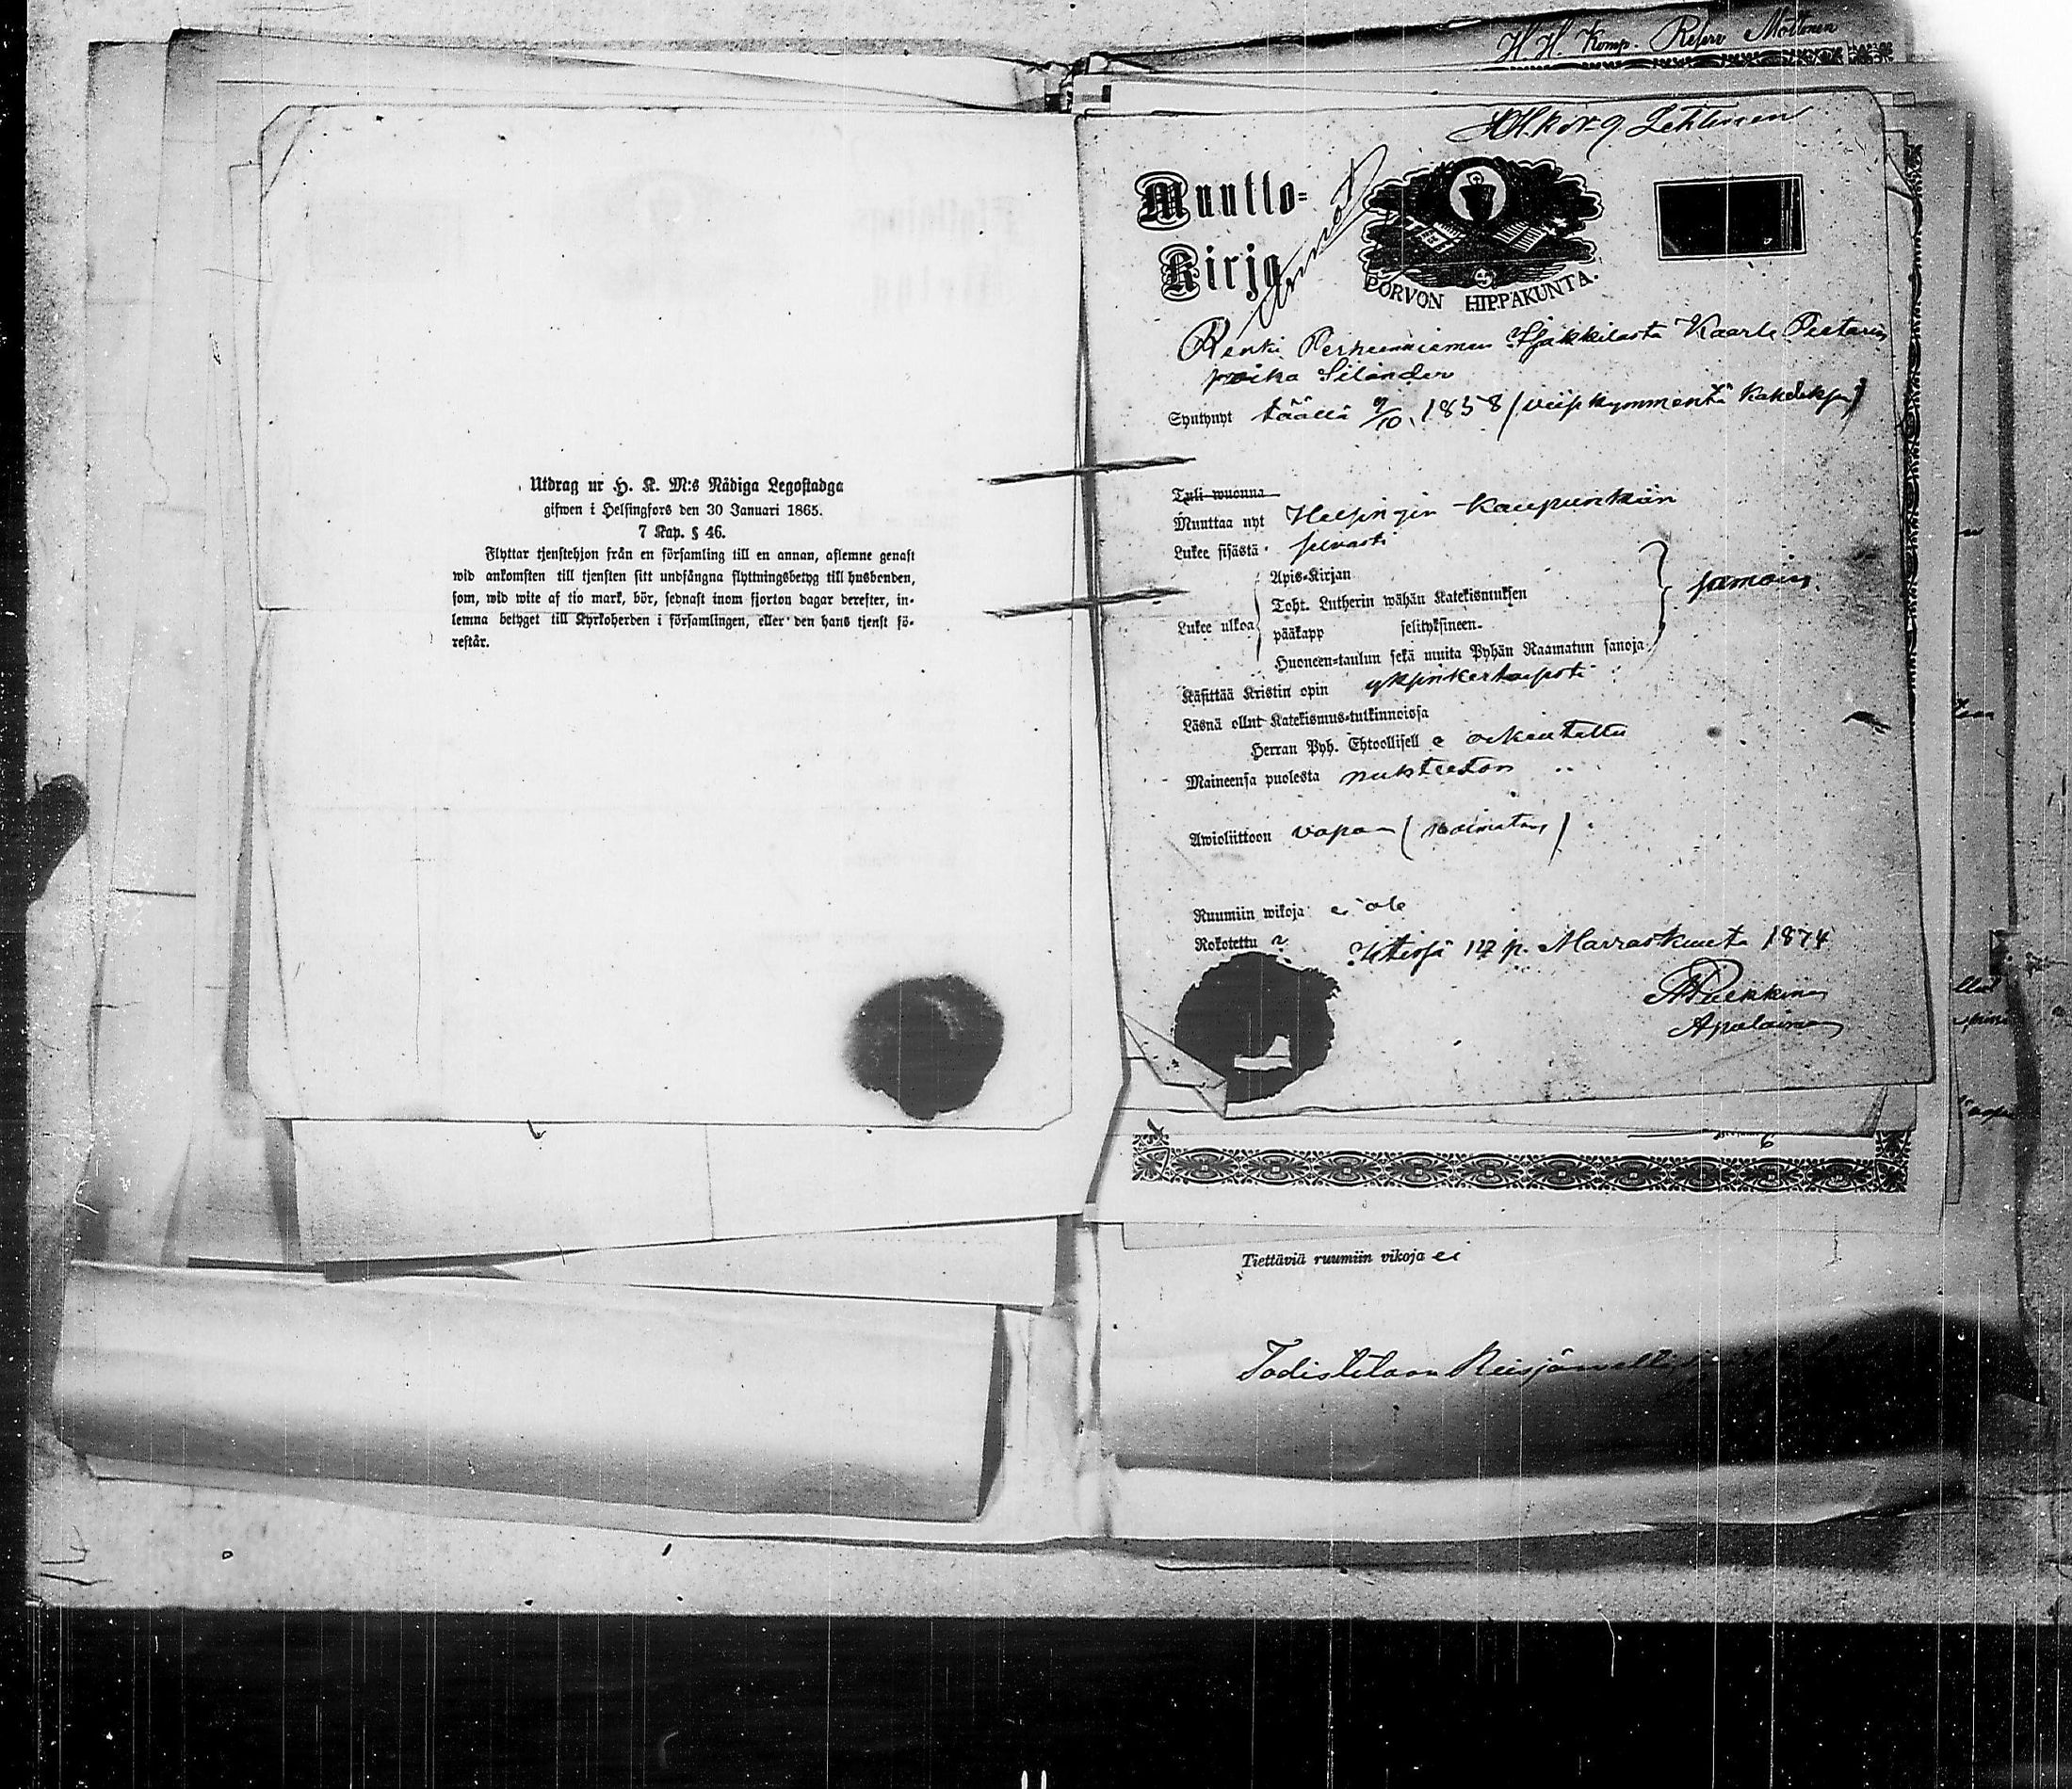 H. H. Komp. Reserv Möttönen
Utdrag ur H. K. M:s Nådiga Legostadga
gifwen i Helsingfors den 30 Januari 1865.
7 Kap. § 46.
Flyttar tjenstehjon från en församling till en annan, aflemne genast
wid ankomsten till tjensten sitt undfångna flyttningsbetyg till husbonden,
som, wid wite af tio mark, bör, sednast inom fjorton dagar derefter, in-
lemna betyget till Kyrkoherden i församlingen, eller den hans tjenst fö-
restår.
Lehtinen
Muutto-
Kirja
PORVON HIPPAKUNTA.
Renki Perheenniemen Kaarle Pietarin
poika Silander
Syntynyt täällä 9/10 1858 (viisikymmentä kahdeksan)
Tuli wuonna
Muuttaa nyt Helsingin kaupunkiin
Lukee sisästä selvästi
Lukee ulkoa
Apis-Kirjan
Toht. Lutherin wähän Katekismuksen
pääkapp selityksineen
Huoneen-taulun sekä muita Pyhän Raamatun sanoja
samoin
Käsittää Kristin opin yksinkertaisesti
Läsnä ollut Katekismus-tutkinnoissa
Herran Pyh. Ehtoollisell e oikeutettu
Maineensa puolesta nuhteeton
Awioliittoon vapaa (naimaton)
Ruumiin wikoja ei ole
Rokotettu
Iitissä 17 p. Marraskuuta 1874
Apulainen
6
Tiettäviä ruumiin vikoja ei
Todistetaan Reisjärvellä